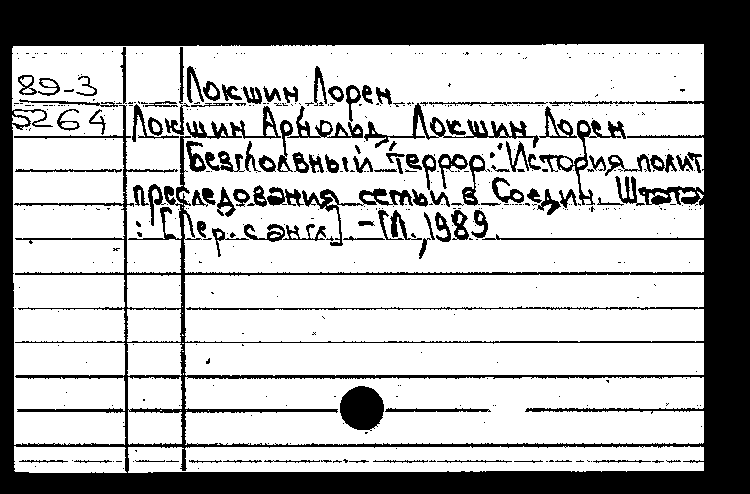 89-3 Локшин Лорен
5264 Локшин Арнольд, Локшин Лорен
Безмолвный террор: История полит
преследования семьи в Соедин. Штатах
: [Пер. с англ.]. - М., 1989.